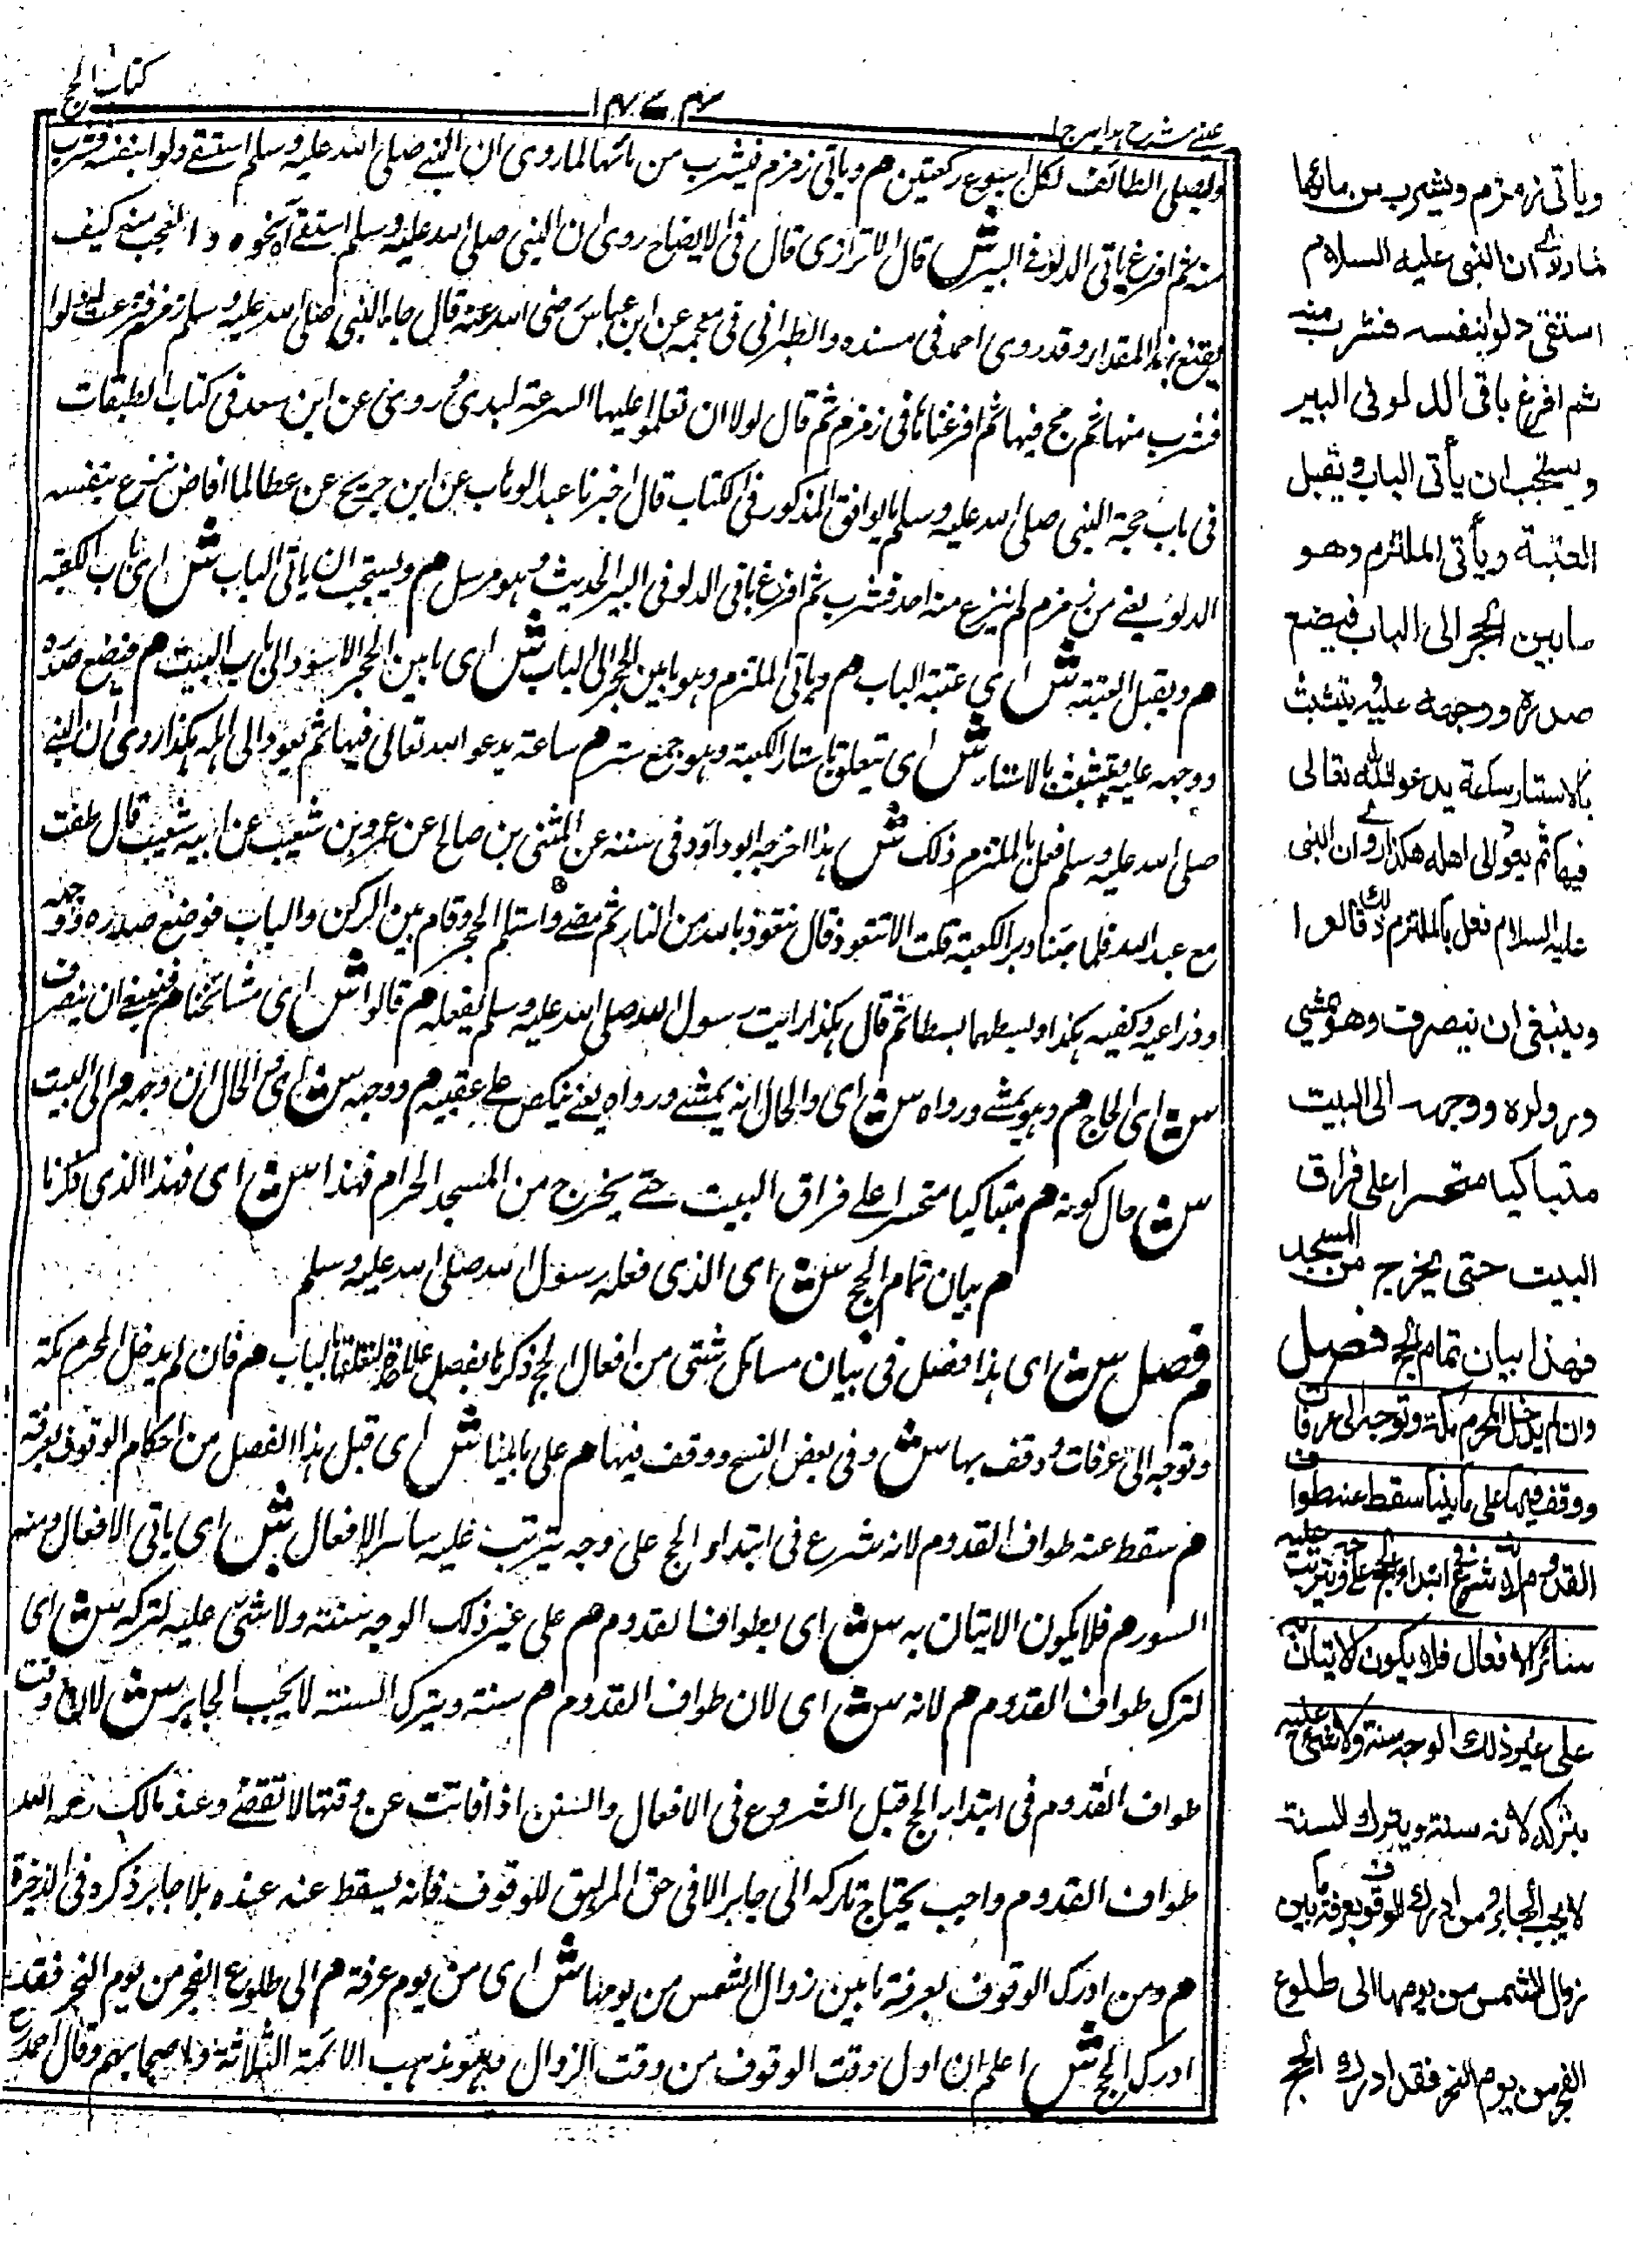 كتاب الحج
عينى شرح هداية ج ١
وليصلى الطائف لكل اسبوع ركعتين م وياتى زمزم فيشرب من مائها لما روى ان النبى صلى الله عليه وسلم استقى دلوا بنفسه فشرب
منه ثم افرغ باقى الدلو فى البير ش قال الاترازى قال فى الايضاح روى ان النبى صلى الله عليه وسلم استقى آه نحوه والعجب منه كيف
يقتنع بهذا المقدار وقد روى احمد فى مسنده والطبرانى فى معجمه عن ابن عباس رضى الله عنه قال جاء النبى صلى الله عليه وسلم زمزم فنزعت له دلوا
فشرب منها ثم مج فيها ثم افرغناها فى زمزم ثم قال لولا ان تغلبوا عليها لنزعت بيدى وروى عن ابن سعد فى كتاب الطبقات
فى باب حجة النبى صلى الله عليه وسلم ما يوافق المذكور فى الكتاب قال اخبرنا عبد الوهاب عن ابن جريج عن عطا لما افاض نزع بنفسه
الدلو يعنى من زمزم لم ينزع منه احد فشرب ثم افرغ باقى الدلو فى البير الحديث وهو مرسل م ويستحب ان ياتى الباب ش اى باب الكعبة
م ويقبل العتبة ش اى عتبة الباب م وياتى الملتزم وهو ما بين الحجر الى الباب ش اى ما بين الحجر الاسود الى باب البيت م فيضع صدره
ووجهه عليه ويتشبث بالاستار ش اى يتعلق باستار الكعبة وهو جمع ستر م ساعة يدعو الله تعالى فيها ثم يعود الى اهله هكذا روى ان النبى
صلى الله عليه وسلم فعل بالملتزم ذلك ش هذا اخرجه ابو داؤد فى سننه عن المثنى بن صالح عن عمرو بن شعيب عن ابيه شعيب قال طفت
مع عبد الله فلما جئنا دبر الكعبة قلت الا تتعوذ قال نتعوذ بالله من النار ثم مضى واستلم الحجر وقام بين الركن والباب فوضع صدره ووجهه
وذراعيه وكفيه هكذا وبسطهما بسطا ثم قال هكذا رايت رسول الله صلى الله عليه وسلم يفعله م قالوا ش اى مشائخنا م فينبغى ان ينصرف
ش اى الحاج م وهو يمشى وراه ش اى والحال انه يمشى وراه يعنى ينكص على عقبيه م ووجهه ش اى والحال ان وجهه م الى البيت
ش حال كونه م متباكيا متحسرا على فراق البيت حتى يخرج من المسجد الحرام فهذا ش اى فهذا الذى ذكرنا
م بيان تمام الحج ش اى الذى فعله رسول الله صلى الله عليه وسلم
م فصل ش اى هذا فصل فى بيان مسائل شتى من افعال الحج ذكرها بفصل على حدة لتعلقها بالباب م فان لم يدخل المحرم مكة
وتوجه الى عرفات ووقف بها ش وفى بعض النسخ ووقف فيها م على ما بينا ش اى قبل هذا الفصل من احكام الوقوف بعرفة
م سقط عنه طواف القدوم لانه شرع فى ابتداء الحج على وجه يترتب عليه سائر الافعال ش اى باقى الافعال منه
السور م فلا يكون الاتيان به ش اى بطواف القدوم م على غير ذلك الوجه سنة ولا شئ عليه لتركه ش اى
لترك طواف القدوم م لانه ش اى لان طواف القدوم م سنة وبترك السنة لا يجب الجابر ش لان وقت
طواف القدوم فى ابتداء الحج قبل الشروع فى الافعال والسنن اذا فاتت عن وقتها لا تقضى وعند مالك رحمه الله
طواف القدوم واجب يحتاج تاركه الى جابر الا فى حق المراهق للوقوف فانه يسقط عنه عنده بلا جابر ذكره فى الذخيرة
م ومن ادرك الوقوف بعرفة ما بين زوال الشمس من يومها ش اى من يوم عرفة م الى طلوع الفجر من يوم النحر فقد
ادرك الحج ش اعلم ان اول وقت الوقوف من وقت الزوال وهو مذهب الائمة الثلاثة واصحابهم وقال احمد
وياتى زمزم ويشرب من مائها
لما روى ان النبى عليه السلام
استقى دلوا بنفسه فشرب منه
ثم افرغ باقى الدلو فى البير
ويستحب ان يأتى الباب ويقبل
العتبة ويأتى الملتزم وهو
ما بين الحجر الى الباب فيضع
صدره ووجهه عليه ويتشبث
بالاستار ساعة يدعو الله تعالى
فيها ثم يعود الى اهله هكذا روى ان النبى
عليه السلام فعل بالملتزم ذلك قالوا
وينبغى ان ينصرف وهو يمشى
وراءه ووجهه الى البيت
متباكيا متحسرا على فراق
البيت حتى يخرج من المسجد
فهذا بيان تمام الحج فصل
وان لم يدخل المحرم مكة وتوجه الى عرفات
ووقف فيها على ما بينا سقط عنه طواف
القدوم لانه شرع فى ابتداء الحج على وجه يترتب عليه
سائر الافعال فلا يكون الاتيان به
على غير ذلك الوجه سنة ولا شئ عليه
بتركه لانه سنة وبترك السنة
لا يجب الجابر ومن ادرك الوقوف بعرفة ما بين
زوال الشمس من يومها الى طلوع
الفجر من يوم النحر فقد ادرك الحج